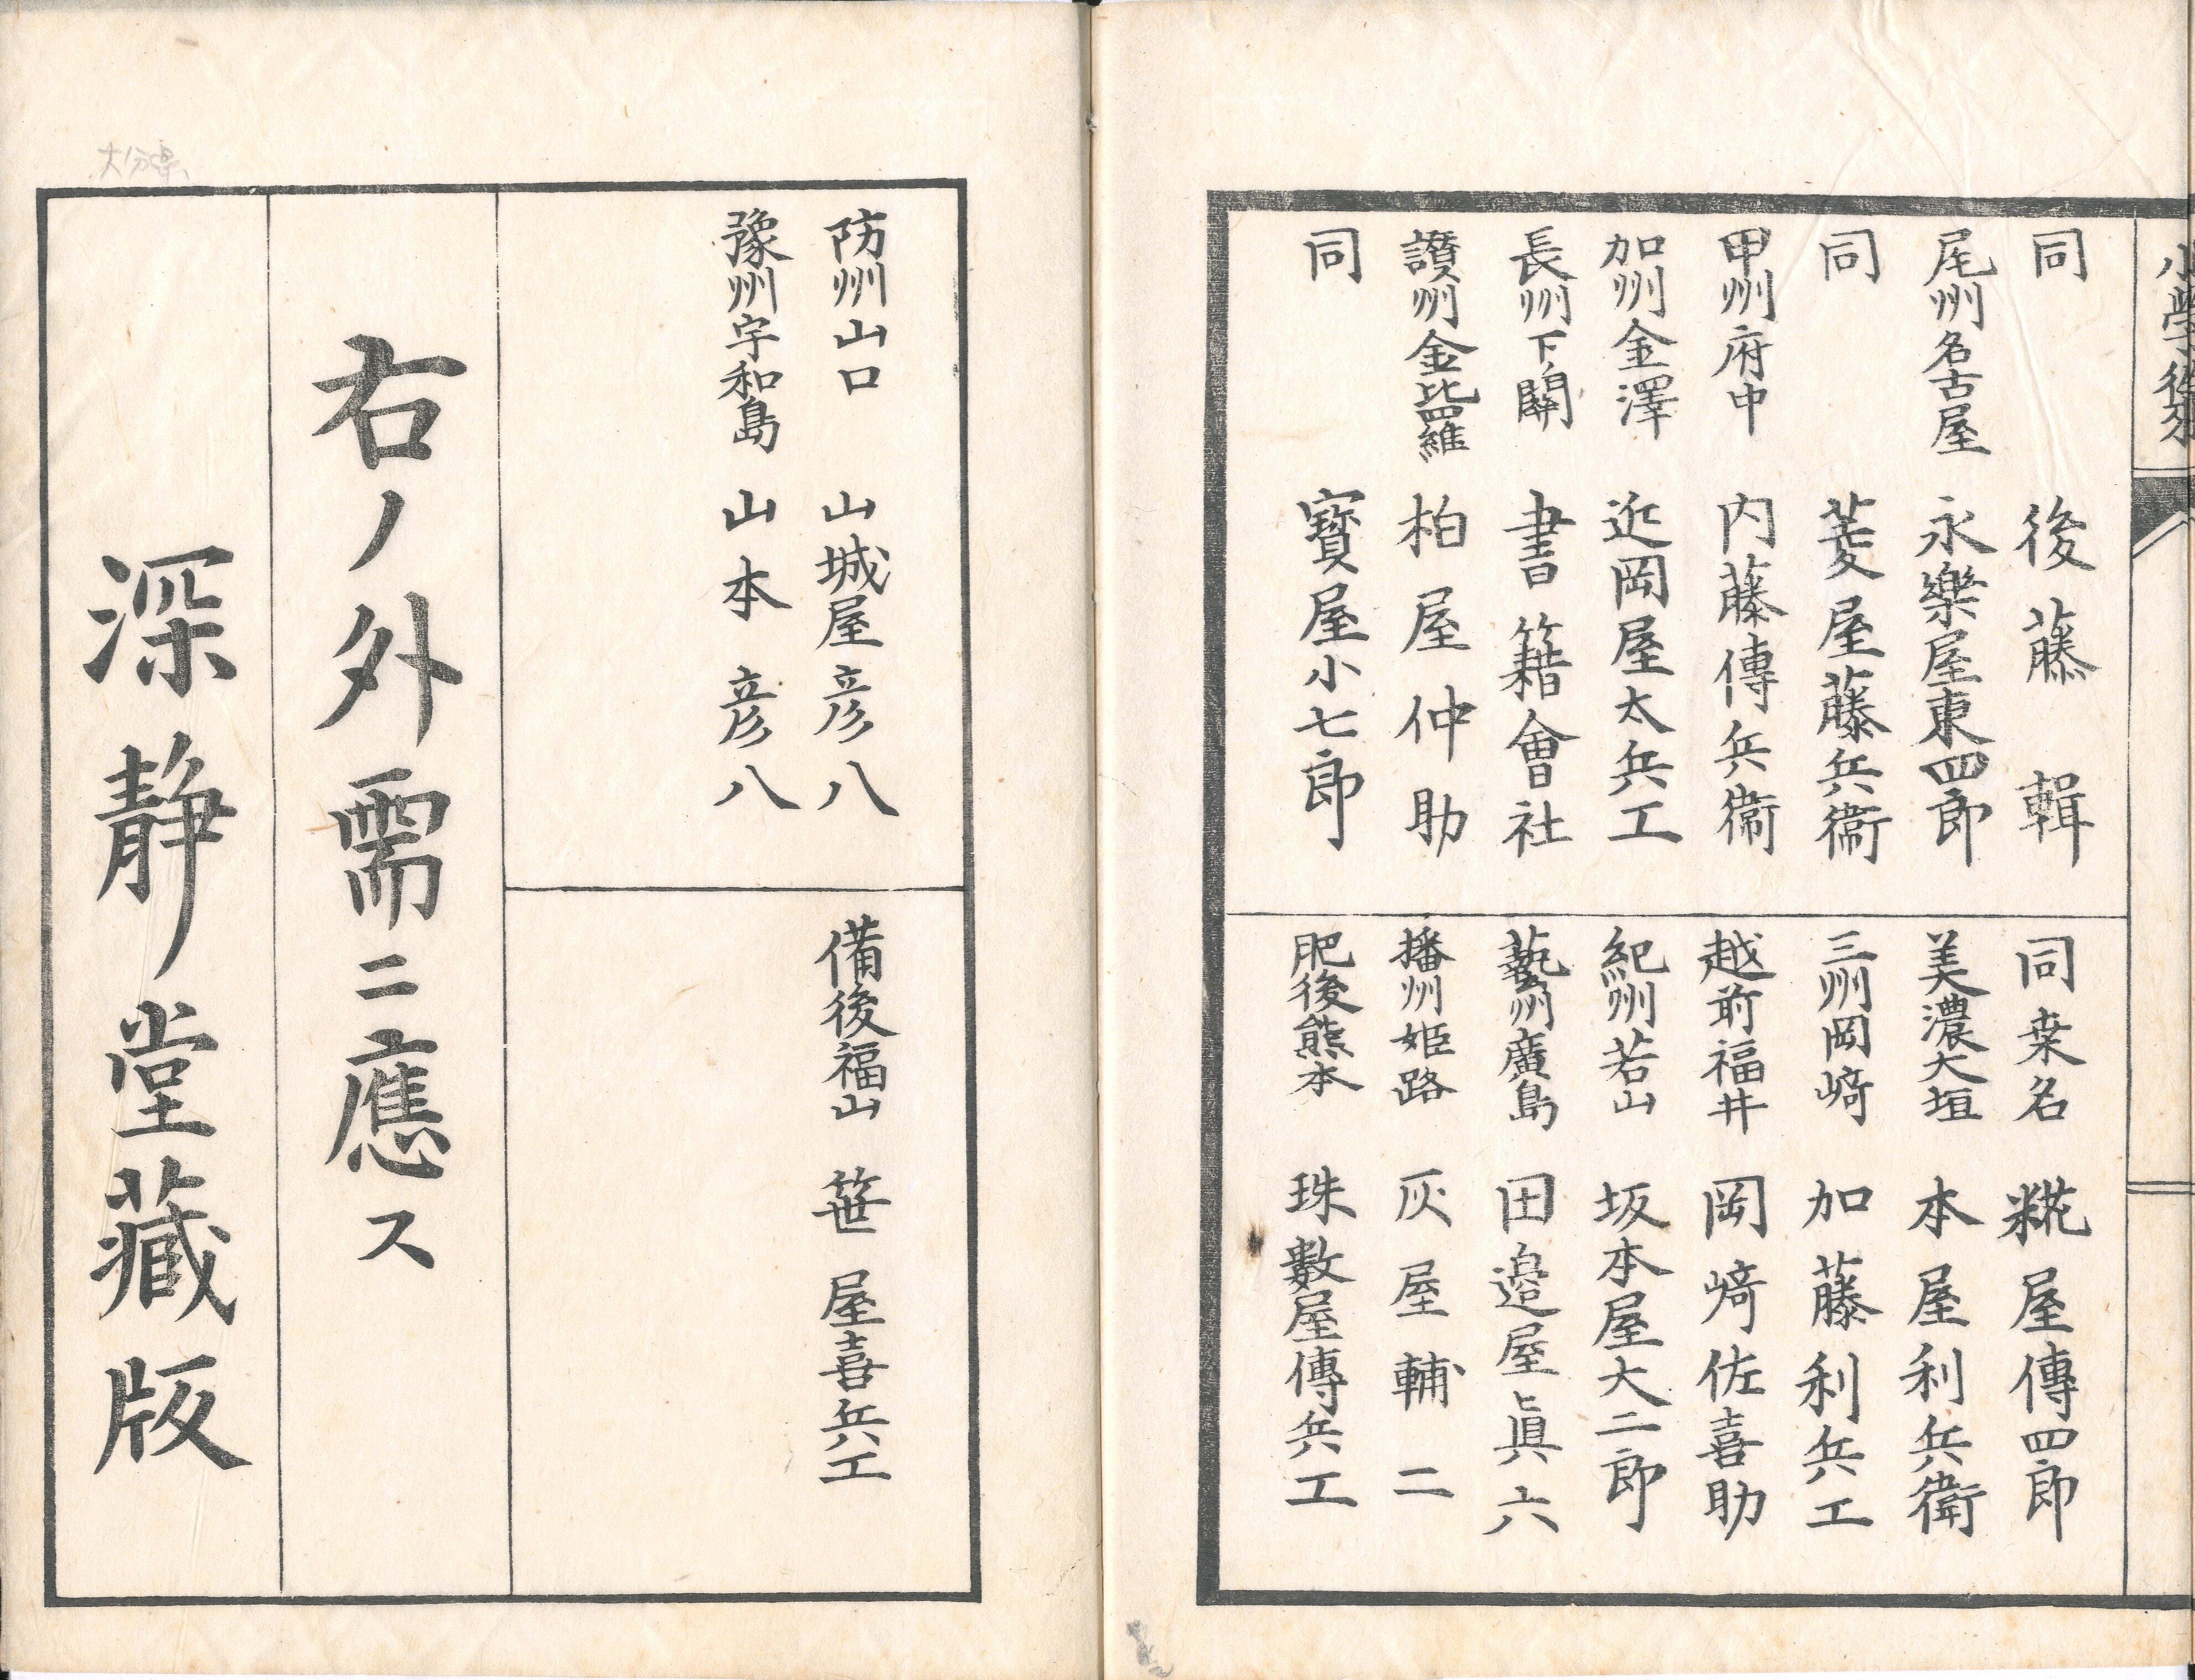 同　後藤　輯
尾州名古屋　永樂屋東四郎
同　菱屋藤兵衞
甲州府中　内藤傳兵衞
加州金澤　近岡屋太兵エ
長州下ノ關　書籍會社
讃州金比羅　柏屋仲助
同　寶屋小七郎
同桒名　糀屋傳四郎
美濃大垣　本屋利兵衛
三州岡﨑　加藤利兵エ
越前福井　岡﨑佐喜助
紀州若山　坂本屋大二郎
藝州廣島　田邉屋眞六
播州姫路　灰屋輔二
肥後熊本　珠數屋傳兵エ
防州山口　山城屋彦八
豫州宇和島　山本彦八
備後福山　笹屋喜兵エ
右ノ外需ニ應ス
深靜堂藏版
大分県